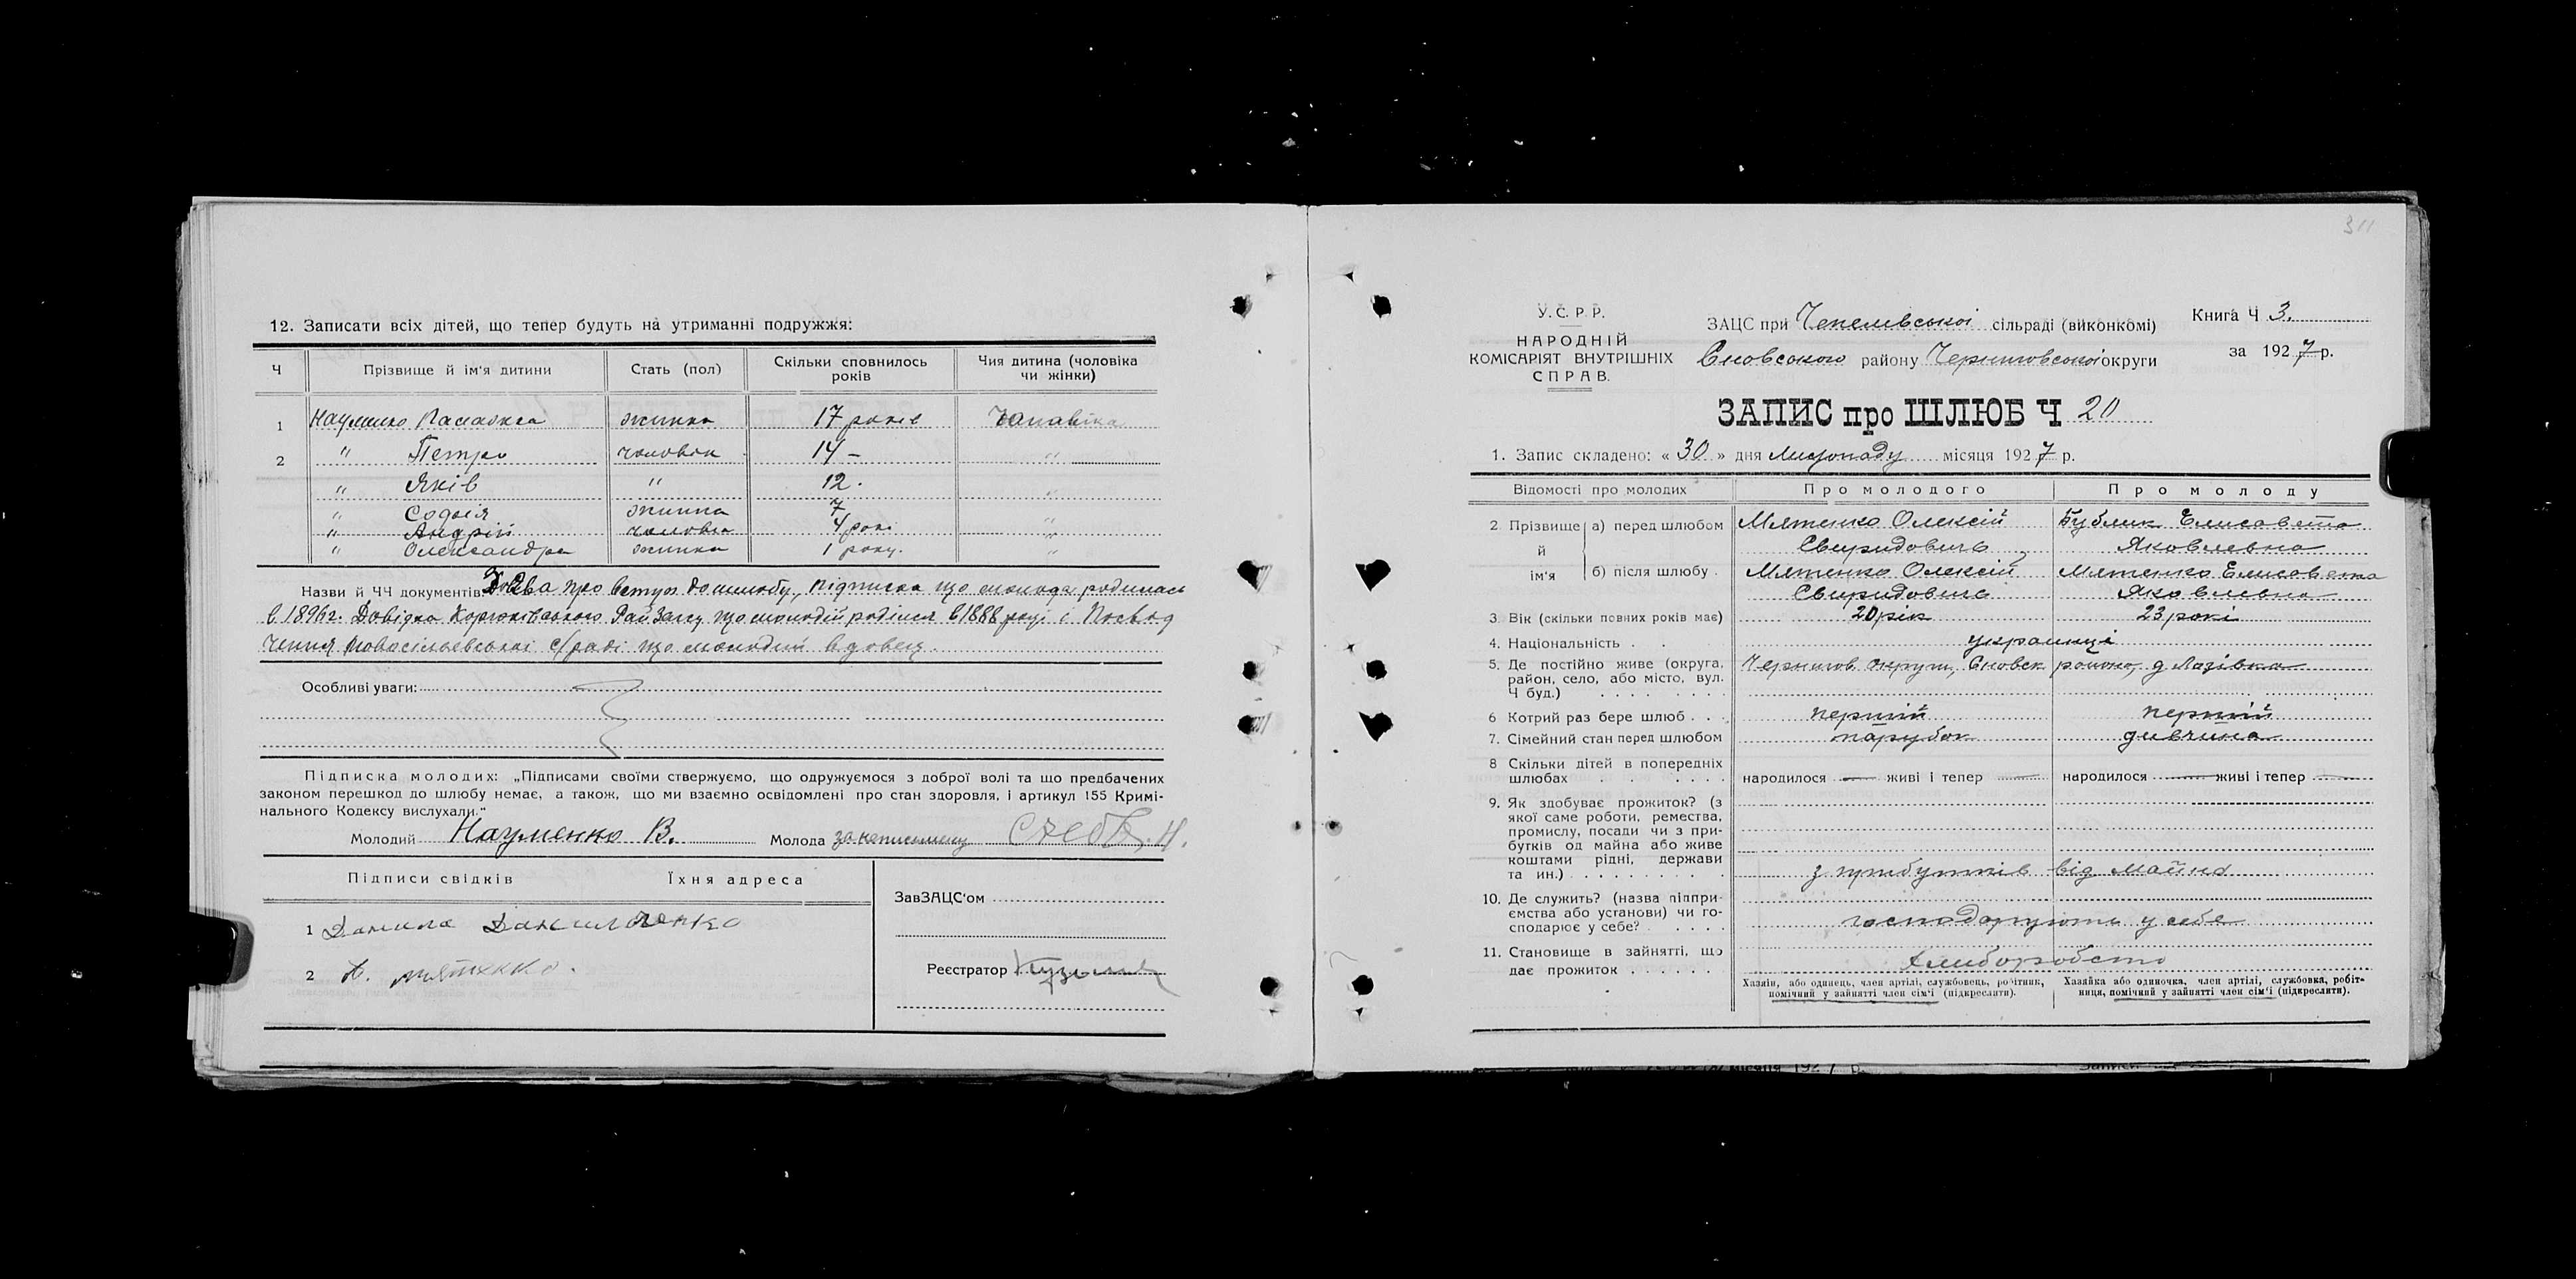 12. Записати всіх дітей, що тепер будуть на утриманні подружжя:
Ч Прізвище й ім'я дитини Стать (пол) Скільки сповнилось років Чия дитина (чоловіка чи жінки)
1 Науменко жинка 17 років
2 " Петро чоловік 14 – "
" Яків " 12. "
" Софія жинка 7 "
" Андрій чоловік 4 рокі "
" Олександра жинка 1 року. "
Назви й ЧЧ документів: про вступ до шлюбу, підписка що молода родилась
в 1896 г. Довідка Корюківського Рай Загсу що молодій родився в 1888 році і Посвід
чення с/раді що молодий вдовец.
Особливі уваги:
Підписка молодих: „Підписами своїми стверджуємо, що одружуємося з доброї волі та що предбачених
законом перешкод до шлюбу немає, а також, що ми взаємно освідомлені про стан здоровля, і артикул 155 Кримі-
нального Кодексу вислухали."
Молодий Науменко В. Молода за неписьмену
Підписи свідків Їхня адреса
1 Данила Данильченко
2 Мятенко.
ЗавЗАЦС'ом
Реєстратор
311
У.С.Р.Р.
НАРОДНІЙ
КОМІСАРІЯТ ВНУТРІШНІХ
СПРАВ.
ЗАЦС при Чепелівської сільраді (виконкомі)
Сновського району Черниговської округи
Книга Ч 3.
за 1927 р.
ЗАПИС про ШЛЮБ Ч 20
1. Запис складено: « 30 » дня Листопаду місяця 1927 р.
Відомості про молодих Про молодого Про молоду
2. Прізвище й ім'я а) перед шлюбом Мятенко Олексій Бублик Елисавета
Свиридовичь Яковлевна
б) після шлюбу Мятенко Олексій Мятенко Елисавета
Свиридовичь Яковлевна
3. Вік (скільки повних років має) 20 рік 23 рокі
4. Національність украинці
5. Де постійно живе (округа, район, село, або місто, вул. Ч буд.) Чернигов округи, Сновск району, д Лазівка
6 Котрий раз бере шлюб перший перший
7. Сімейний стан перед шлюбом парубок дивчина
8 Скільки дітей в попередніх шлюбах народилося — живі і тепер — народилося — живі і тепер —
9. Як здобуває прожиток? (з якої саме роботи, ремества, промислу, посади чи з прибутків од майна або живе коштами рідні, держави та ин.) з прибутків від майна
10. Де служить? (назва підприємства або установи) чи господарює у себе? господарують у себе
11. Становище в зайнятті, що дає прожиток хлиборобство
Хазяїн, або одинець, член артілі, службовець, робітник, помічний у зайнятті член сім'ї (підкреслити).
Хазяйка або одиночка, член артілі, службовка, робітниця, помічний у зайнятті член сім'ї (підкреслити).